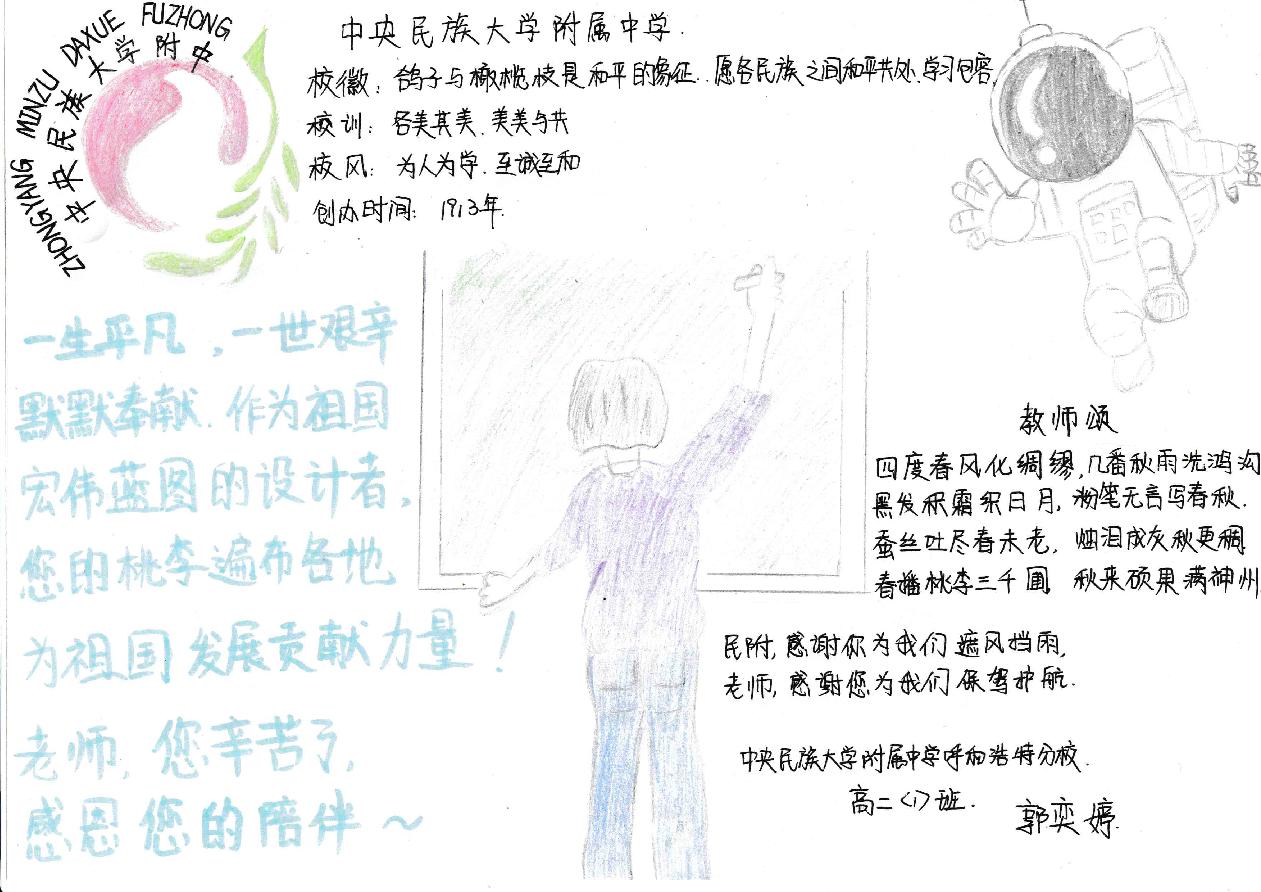 ZHONGYANG MINZU DAXUE FUZHONG
中央民族大学附中
中央民族大学附属中学.
校徽：鸽子与橄榄枝是和平的象征.愿各民族之间和平共处.学习包容.
校训：各美其美.美美与共
校风：为人为学.至诚至和
创办时间：1913年.
一生平凡，一世艰辛
默默奉献.作为祖国
宏伟蓝图的设计者，
您的桃李遍布各地
为祖国发展贡献力量！
老师，您辛苦了，
感恩您的陪伴～
教师颂
四度春风化绸缪，几番秋雨洗鸿沟
黑发积霜织日月，粉笔无言写春秋.
蚕丝吐尽春未老，烛泪成灰秋更稠
春播桃李三千圃 秋来硕果满神州
民附，感谢你为我们遮风挡雨，
老师，感谢您为我们保驾护航.
中央民族大学附属中学呼和浩特分校.
高二〈1〉班.
郭奕婷.